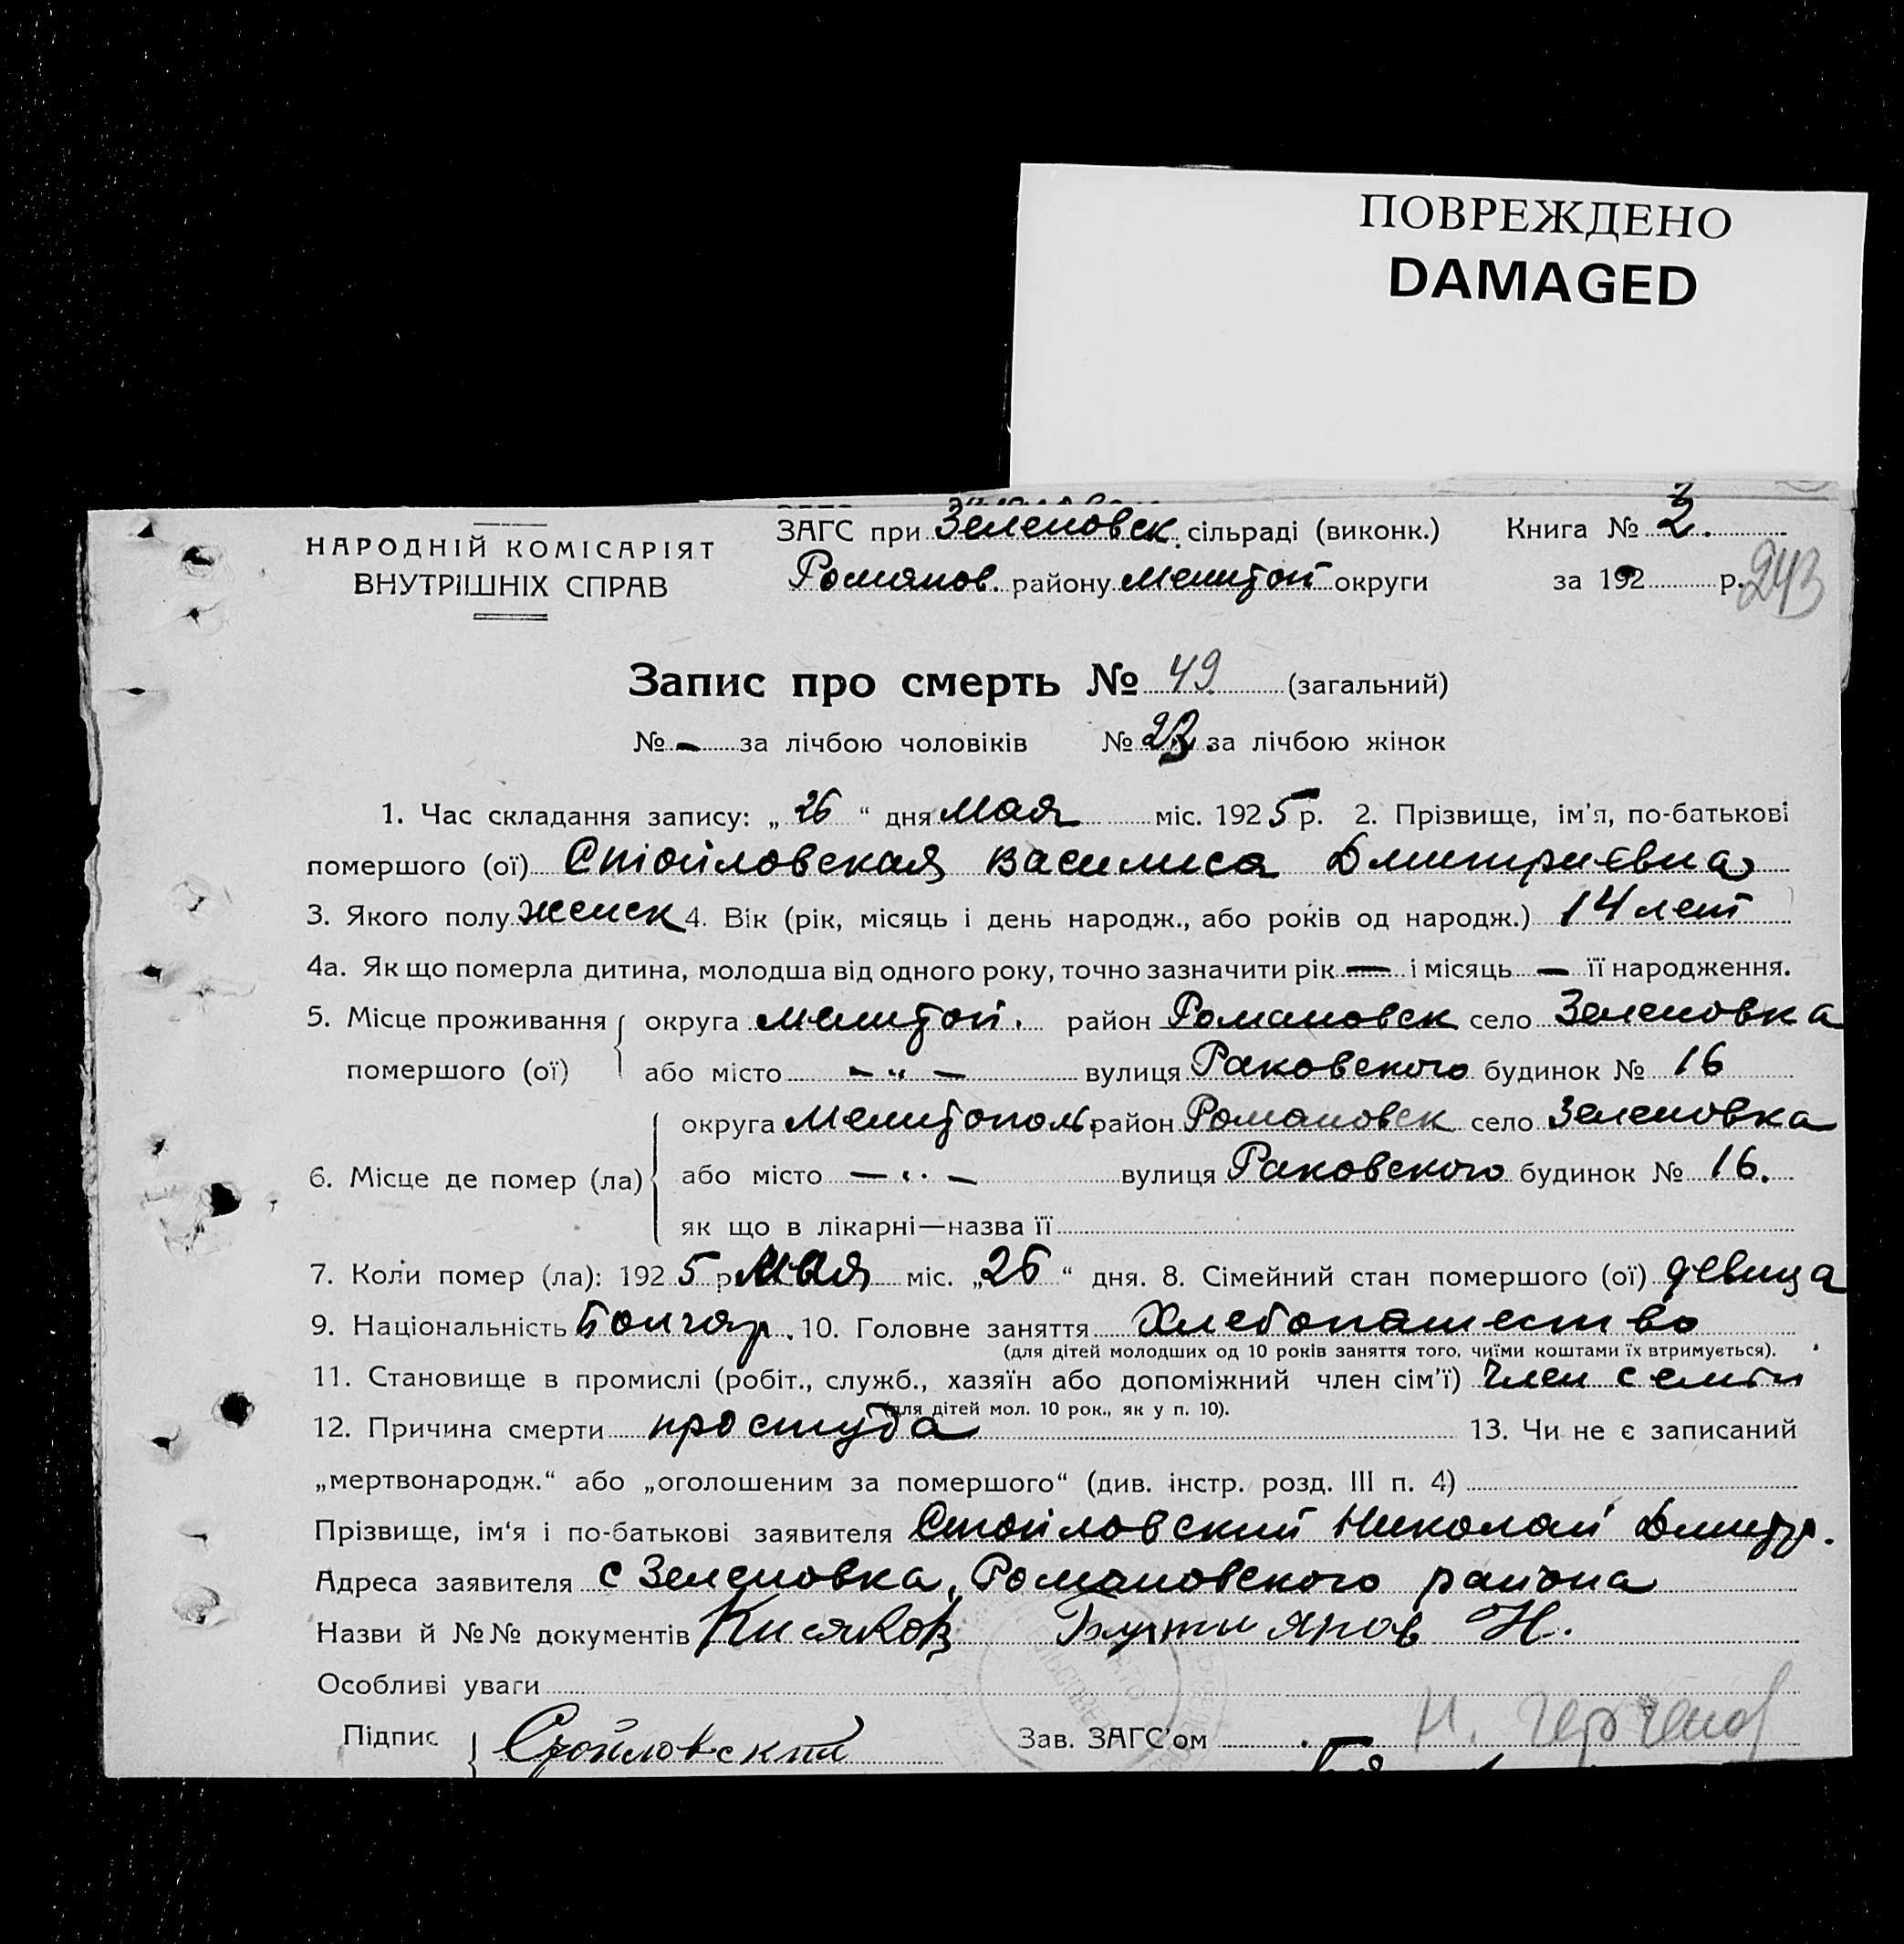 ПОВРЕЖДЕНО
DAMAGED
НАРОДНІЙ КОМІСАРІЯТ
ВНУТРІШНІХ СПРАВ
ЗАГС при Зеленовск. сільраді (виконк.) Книга № 2.
Романов. району Мелитоп округи за 192 р. 243
Запис про смерть № 49 (загальний)
№ - за лічбою чоловіків № 23. за лічбою жінок
1. Час складання запису: „ 26 “ дня Мая міс. 1925 р. 2. Прізвище, ім'я, по-батькові
помершого (ої) Стойловская Василиса Дмитриевна
3. Якого полу женск 4. Вік (рік, місяць і день народж., або років од народж.) 14 лет
4а. Як що померла дитина, молодша від одного року, точно зазначити рік — і місяць — її народження.
5. Місце проживання округа Мелитоп. район Романовск село Зеленовка
помершого (ої) або місто - „ - вулиця Раковского будинок № 16
округа Мелитополь. район Романовск село Зеленовка
6. Місце де помер (ла) або місто — „ — вулиця Раковского будинок № 16.
як що в лікарні—назва її
7. Коли помер (ла): 1925 р. Мая міс. „26“ дня. 8. Сімейний стан помершого (ої) девица
9. Національність Болгар. 10. Головне заняття Хлебопашество
(для дітей молодших од 10 років заняття того, чиїми коштами їх втримується).
11. Становище в промислі (робіт., служб., хазяїн або допоміжний член сім'ї) член семьи
(для дітей мол. 10 рок., як у п. 10).
12. Причина смерти простуда 13. Чи не є записаний
„мертвонародж.“ або „оголошеним за помершого“ (див. інстр. розд. III п. 4)
Прізвище, ім'я і по-батькові заявителя Стойловский Николай Дмитр.
Адреса заявителя с Зеленовка, Романовского района
Назви й №№ документів Кисяков Н.
Особливі уваги
Підпис Стойловский Зав. ЗАГС'ом Н.